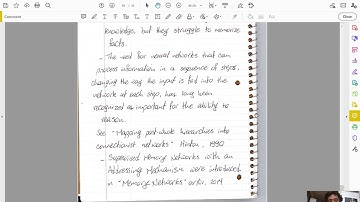 knowledge, but they struggle to memorize
facts.
- The need for neural networks that can
process information in a sequence of steps,
changing the way the input is fed into the
network at each step, has long been
recognized as important for the ability to
reason.
See "Mapping part-whole hierarchies into
connectionist networks" Hinton, 1990
- Supervised Memory Networks with an
Addressing Mechanism were introduced
in "Memory Networks" arXiv, 2014